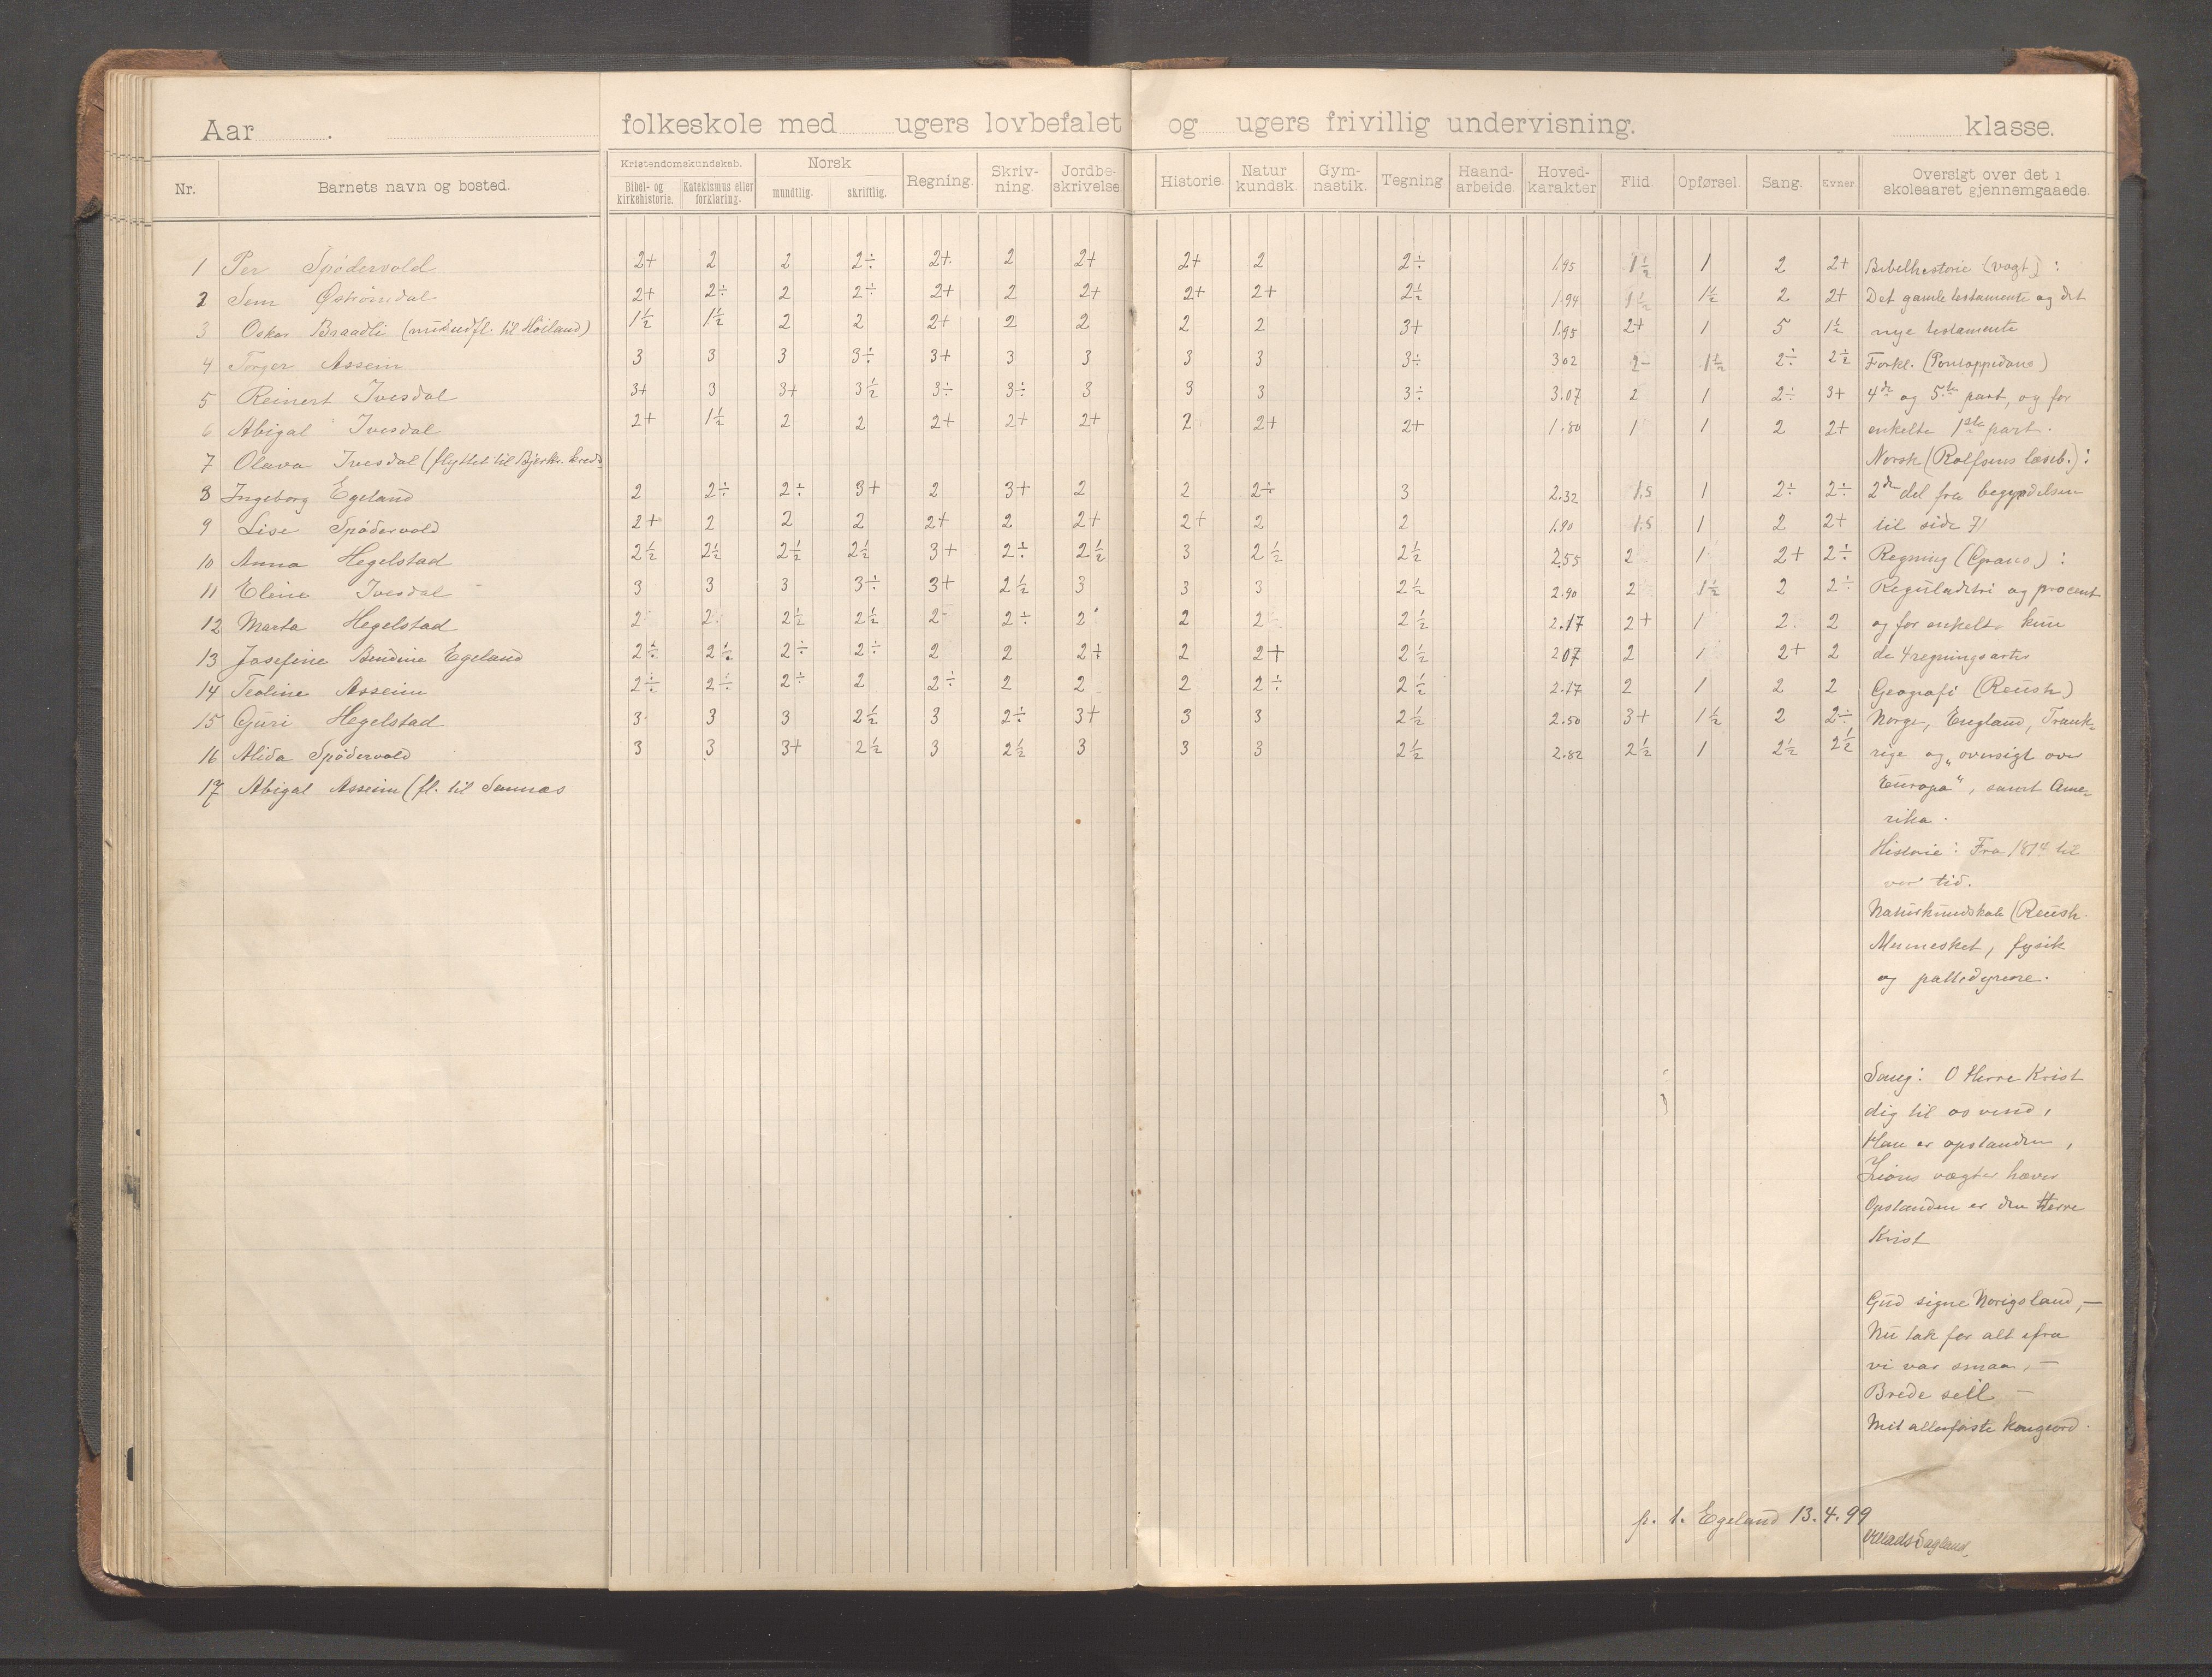 Aar .
folkeskole med ugers lovbefalet og ugers frivillig undervisning. klasse.
Nr. Barnets navn og bosted. Kristendomskundskab. Bibel- og kirkehistorie. Katekismus eller forklaring. Norsk mundtlig. skriftlig. Regning. Skriv-ning. Jordbe-skrivelse. Historie. Natur kundsk. Gym-nastik. Tegning Haand-arbeide. Hoved-karakter Flid. Opførsel. Sang. Evner. Oversigt over det i skoleaaret gjennemgaaede.
1 Per Spødervold 2+ 2 2 2÷ 2+ 2 2+ 2+ 2 2÷ 1.95 1½ 1 2 2+ Bibelhistorie (vogt) :
2 Sem Østrømdal 2+ 2÷ 2 2÷ 2+ 2 2+ 2+ 2+ 2½ 1.94 1½ 1½ 2 2+ Det gamle testamente og det
3 Oskar Braadli (nu udfl. til Høiland) 1½ 1½ 2 2 2+ 2 2 2 2 3+ 1.95 2+ 1 5 1½ nye testamente
4 Torger Asseim 3 3 3 3÷ 3+ 3 3 3 3 3÷ 302 2- 1½ 2÷ 2½ Forkl. (Pontoppidans)
5 Reinert Ivesdal 3+ 3 3+ 3½ 3÷ 3÷ 3 3 3 3÷ 3.07 2 1 2÷ 3+ 4de og 5te part, og for
6 Abigal Ivesdal 2+ 1½ 2 2 2+ 2+ 2+ 2 2+ 2+ 1.80 1 1 2 2+ enkelte 1ste part.
7 Olava Ivesdal (flyttet til Bjerkr. kreds Norsk (Rolfsens læseb.) :
8 Ingeborg Egeland 2 2÷ 2÷ 3+ 2 3+ 2 2 2÷ 3 2.32 1.5 1 2÷ 2÷ 2den del fra begyndelsen
9 Lise Spødervold 2+ 2 2 2 2+ 2 2+ 2+ 2 2 1.90 1.5 1 2 2+ til side 71
10 Anna Hegelstad 2½ 2½ 2½ 2½ 3+ 2÷ 2½ 3 2½ 2½ 2.55 2 1 2+ 2÷ Regning (Opaus) :
11 Eline Ivesdal 3 3 3 3÷ 3+ 2½ 3 3 3 2½ 2.90 2 1½ 2 2÷ Reguladetri og procent
12 Marta Hegelstad 2 2 2½ 2½ 2- 2÷ 2 2 2 2½ 2.17 2+ 1 2 2 og for enkelte kun
13 Josefine Bendine Egeland 2÷ 2÷ 2÷ 2÷ 2 2 2+ 2 2+ 2½ 207 2 1 2+ 2 de 4 regningsarter
14 Teoline Asseim 2÷ 2÷ 2÷ 2 2÷ 2 2 2 2÷ 2½ 2.17 2 1 2 2 Geografi (Reush)
15 Guri Hegelstad 3 3 3 2½ 3 2÷ 3+ 3 3 2½ 2.50 3+ 1½ 2 2÷ Norge, England, Frank-
16 Alida Spødervold 3 3 3+ 2½ 3 2½ 3 3 3 2½ 2.82 2½ 1 2½ 2½ rige og „oversigt over
17 Abigal Asseim (fl. til Sannæs Europa", samt Ame-
rika.
Historie : Fra 1814 til
vor tid.
Naturkundskab (Reush.
Mennesket, fysik
og pattedyrene.
Sang: O Herre Krist
dig til os vend,
Han er opstanden,
Zions vægter hæver
Opstanden er den Herre
Krist
Gud signe Norigsland, —
Nu tak for alt ifra
vi var smaa, —
Brede seil —
Mit allerførste kongeord.
p. t. Egeland 13.4.99